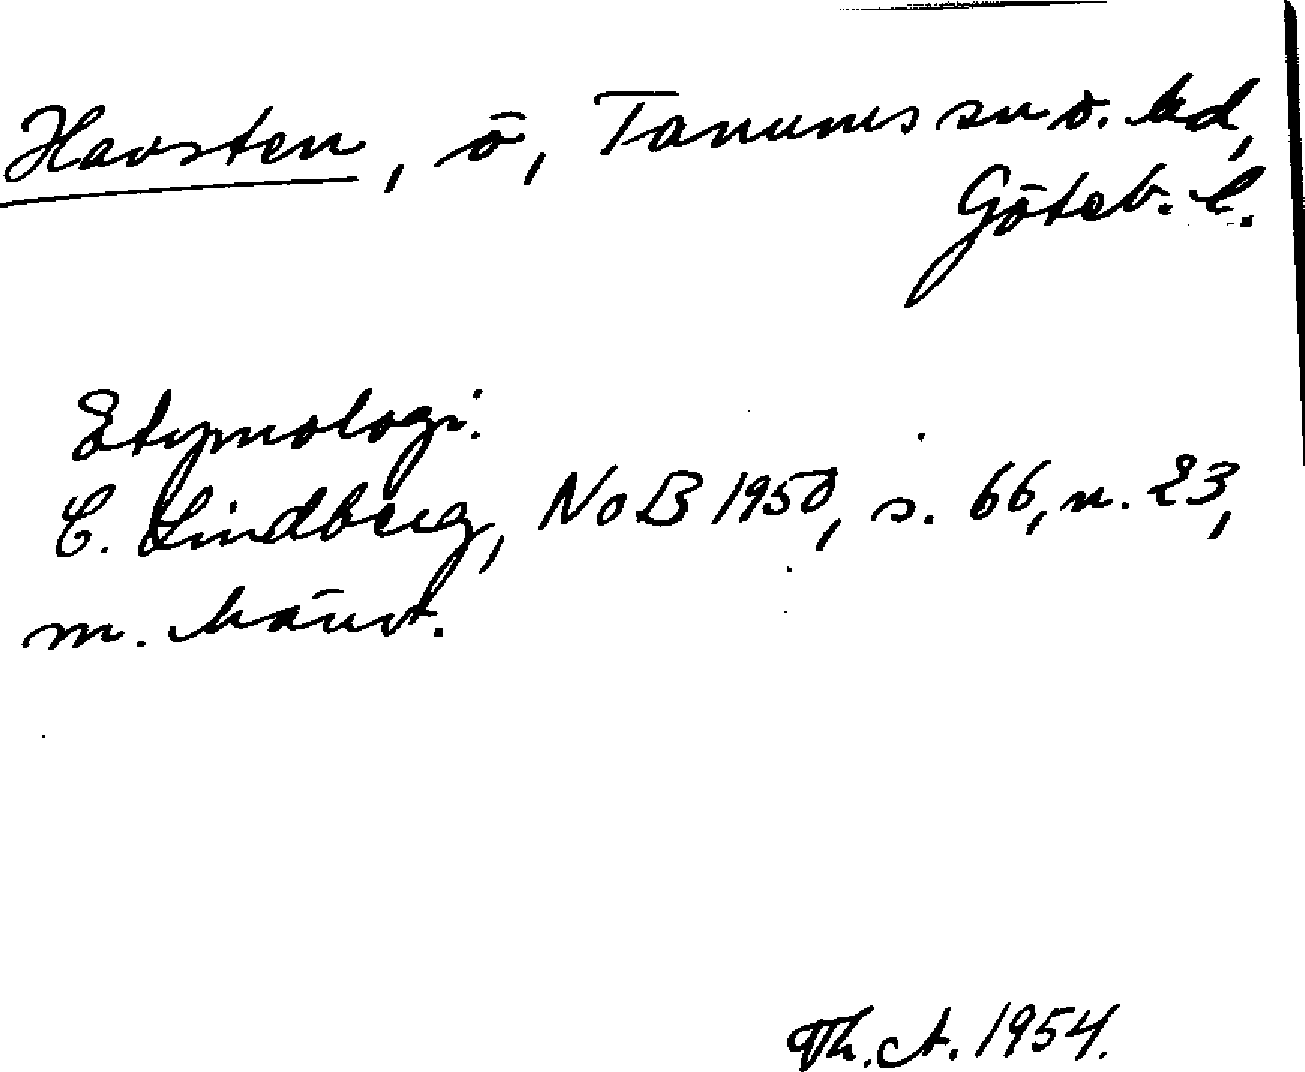 Havsten, ö, Tanums sn o. hd,
Göteb. l.
Etymologi:
C. Lindberg, NoB 1950, s. 66, n. 23,
m. hänv.
Th. A. 1954.